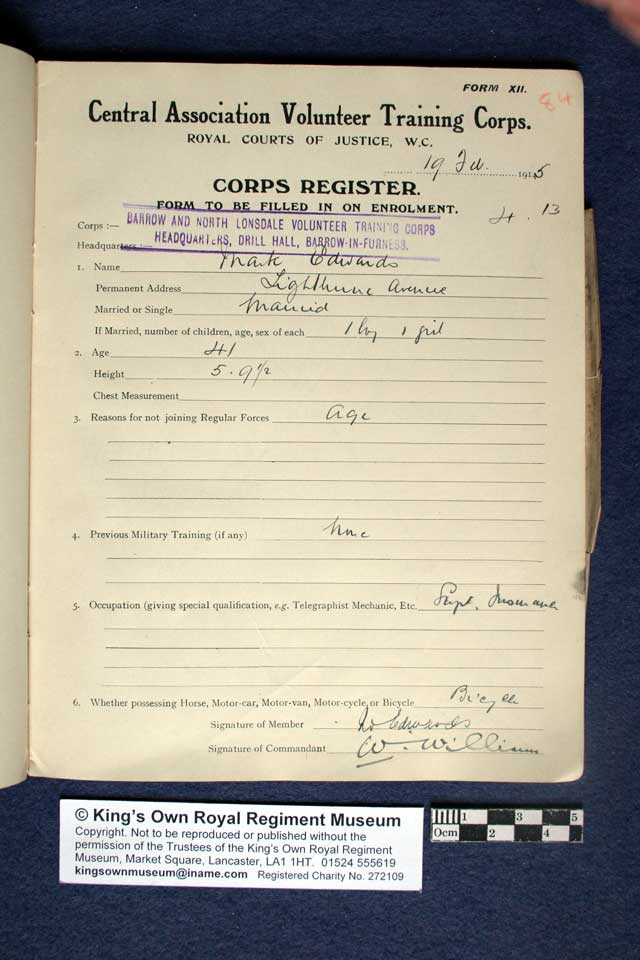 FORM XII.
84
Central Association Volunteer Training Corps.
ROYAL COURTS OF JUSTICE, W.C.
19 Feb. 1915
CORPS REGISTER.
FORM TO BE FILLED IN ON ENROLMENT.
4.13
Corps :—
BARROW AND NORTH LONSDALE VOLUNTEER TRAINING CORPS
Headquarters :—
HEADQUARTERS, DRILL HALL, BARROW-IN-FURNESS.
1. Name Mark Edwards
Permanent Address Avenue
Married or Single Married
If Married, number of children, age, sex of each 1 boy 1 girl
2. Age 41
Height 5.9½
Chest Measurement
3. Reasons for not joining Regular Forces age
4. Previous Military Training (if any) None
5. Occupation (giving special qualification, e.g. Telegraphist Mechanic, Etc. Supt. Insurance
6. Whether possessing Horse, Motor-car, Motor-van, Motor-cycle, or Bicycle Bicycle
Signature of Member M Edwards
Signature of Commandant W. Williams
© King's Own Royal Regiment Museum
Copyright. Not to be reproduced or published without the
permission of the Trustees of the King's Own Royal Regiment
Museum, Market Square, Lancaster, LA1 1HT. 01524 555619
kingsownmuseum@iname.com Registered Charity No. 272109
1 3 5
0cm 2 4